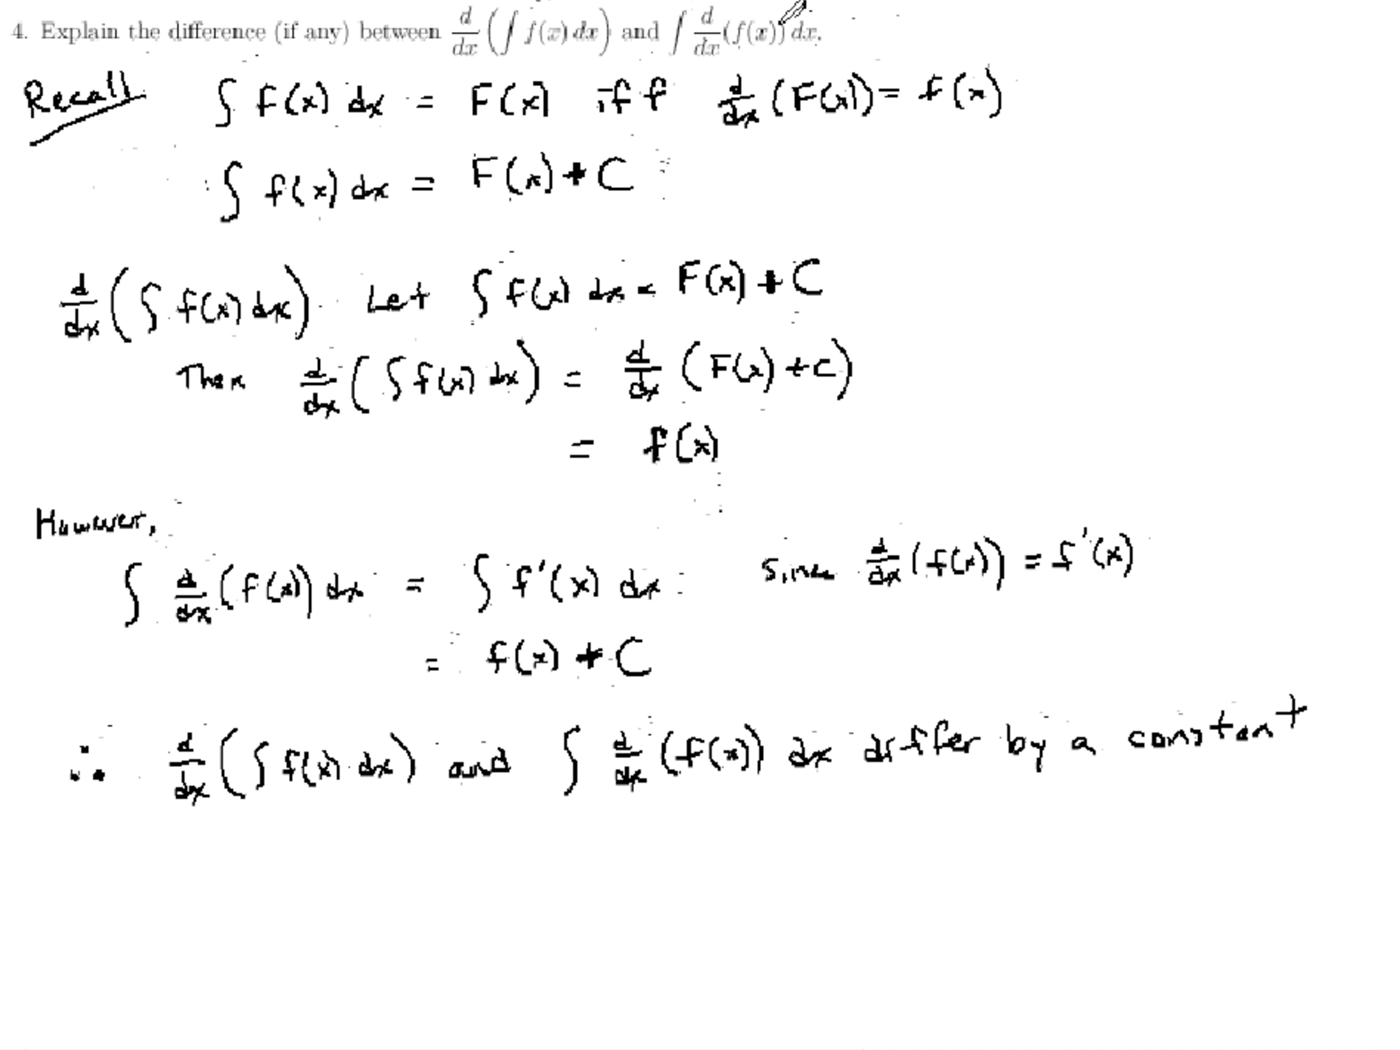 4. Explain the difference (if any) between d/dx (∫ f(x) dx) and ∫ d/dx (f(x)) dx.
Recall ∫ f(x) dx = F(x) iff d/dx (F(x)) = f(x)
∫ f(x) dx = F(x) + C
d/dx (∫ f(x) dx) Let ∫ f(x) dx = F(x) + C
Then d/dx (∫ f(x) dx) = d/dx (F(x) + C)
= f(x)
However,
∫ d/dx (f(x)) dx = ∫ f'(x) dx since d/dx (f(x)) = f'(x)
= f(x) + C
∴ d/dx (∫ f(x) dx) and ∫ d/dx (f(x)) dx differ by a constant